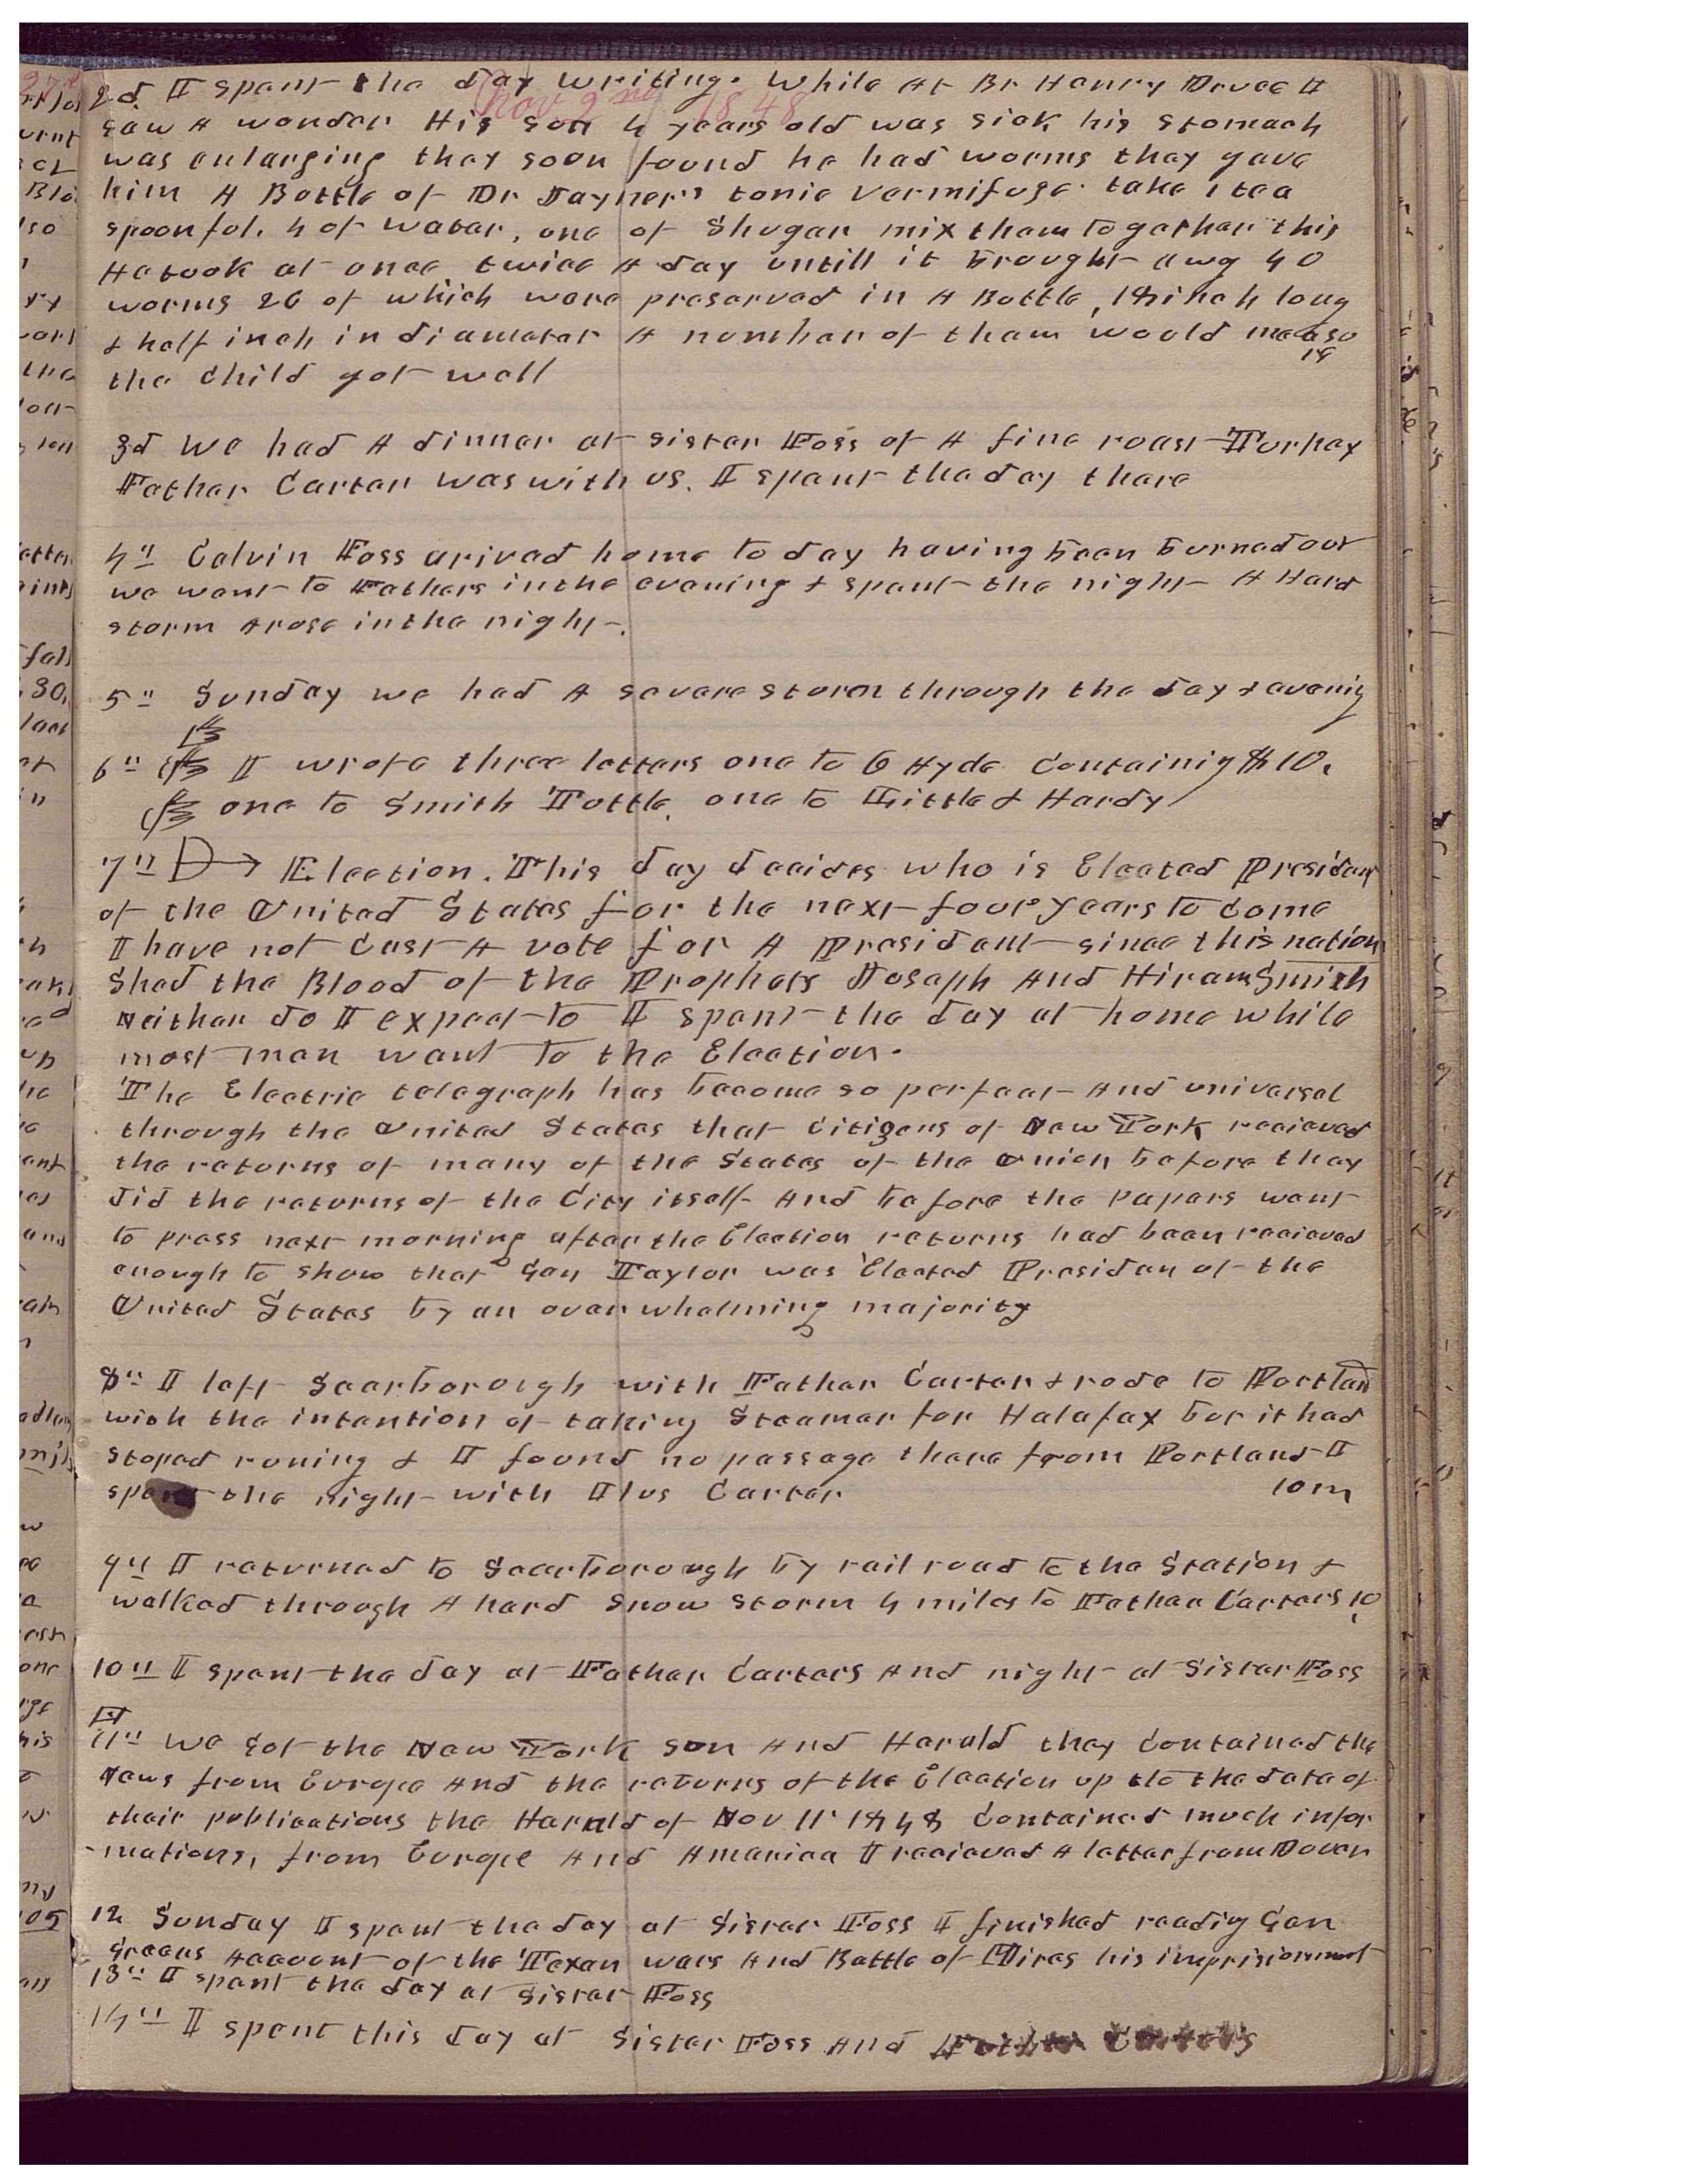 2d. I spent the day writing. While At Br Henry Druce I
Nov 2nd 1848
saw A wonder His son 4 years old was sick his stomach
was enlarging they soon found he had worms they gave
him A Bottle of Dr Jayner's tonic vermifuge. take 1 tea
spoonful. 4 of water, one of Shugar mix them together this
He took at once twice A day untill it brought awy 40
worms 26 of which were preserved in A Bottle, 18 inch long
& half inch in diameter A number of them would measo
18
the child got well
3d We had A dinner at sister Foss of A fine roast Turkey
Father Carter was with us. I spent the day there
4" Calvin Foss arived home to day having been burned out
we went to Fathers in the evening & spent the night A Hard
storm arose in the night.
5" Sunday we had A severe storm through the day & evenig
6" I wrote three letters one to O Hyde Containig $10.
one to Smith Tuttle, one to Little & Hardy
7" Election. This day decides who is Elected Presidant
of the United States for the next four years to come
I have not Cast A vote for A President since this nation
Shed the Blood of the Prophets Joseph And Hiram Smith
Neither do I expect to I spent the day at home while
most men went to the Election.
The Electric telegraph has become so perfect And universal
through the United States that Citizens of New York recieved
the returns of many of the States of the Union before they
did the returns of the City itself And before the papers went
to press next morning after the Election returns had been recieved
enough to show that Gen Taylor was Elected Presiden of the
United States by an overwhelming majority
8" I left Scarborough with Father Carter & rode to Portland
with the intention of taking Steamer for Halafax but it had
stoped runing & I found no passage there from Portland I
spent the night with Ilus Carter 10 m
9" I returned to Scarborough by rail road to the Station &
walked through A hard snow storm 4 miles to Father Carters 10
10" I spent the day at Father Carters And night at Sister Foss
11" We got the New York sun And Harald they Contained the
News from Europe And the returns of the Election up to the date of
their publications the Harald of Nov 11 1848 Contained much infor
-mations, from Europe And America I recieved A letter from Dover
12 Sunday I spent the day at Sister Foss I finished readig Gen
Greens Account of the Texan wars And Battle of Mires his imprisionment
13" I spent the day at Sister Foss
14" I spent this day at Sister Foss And